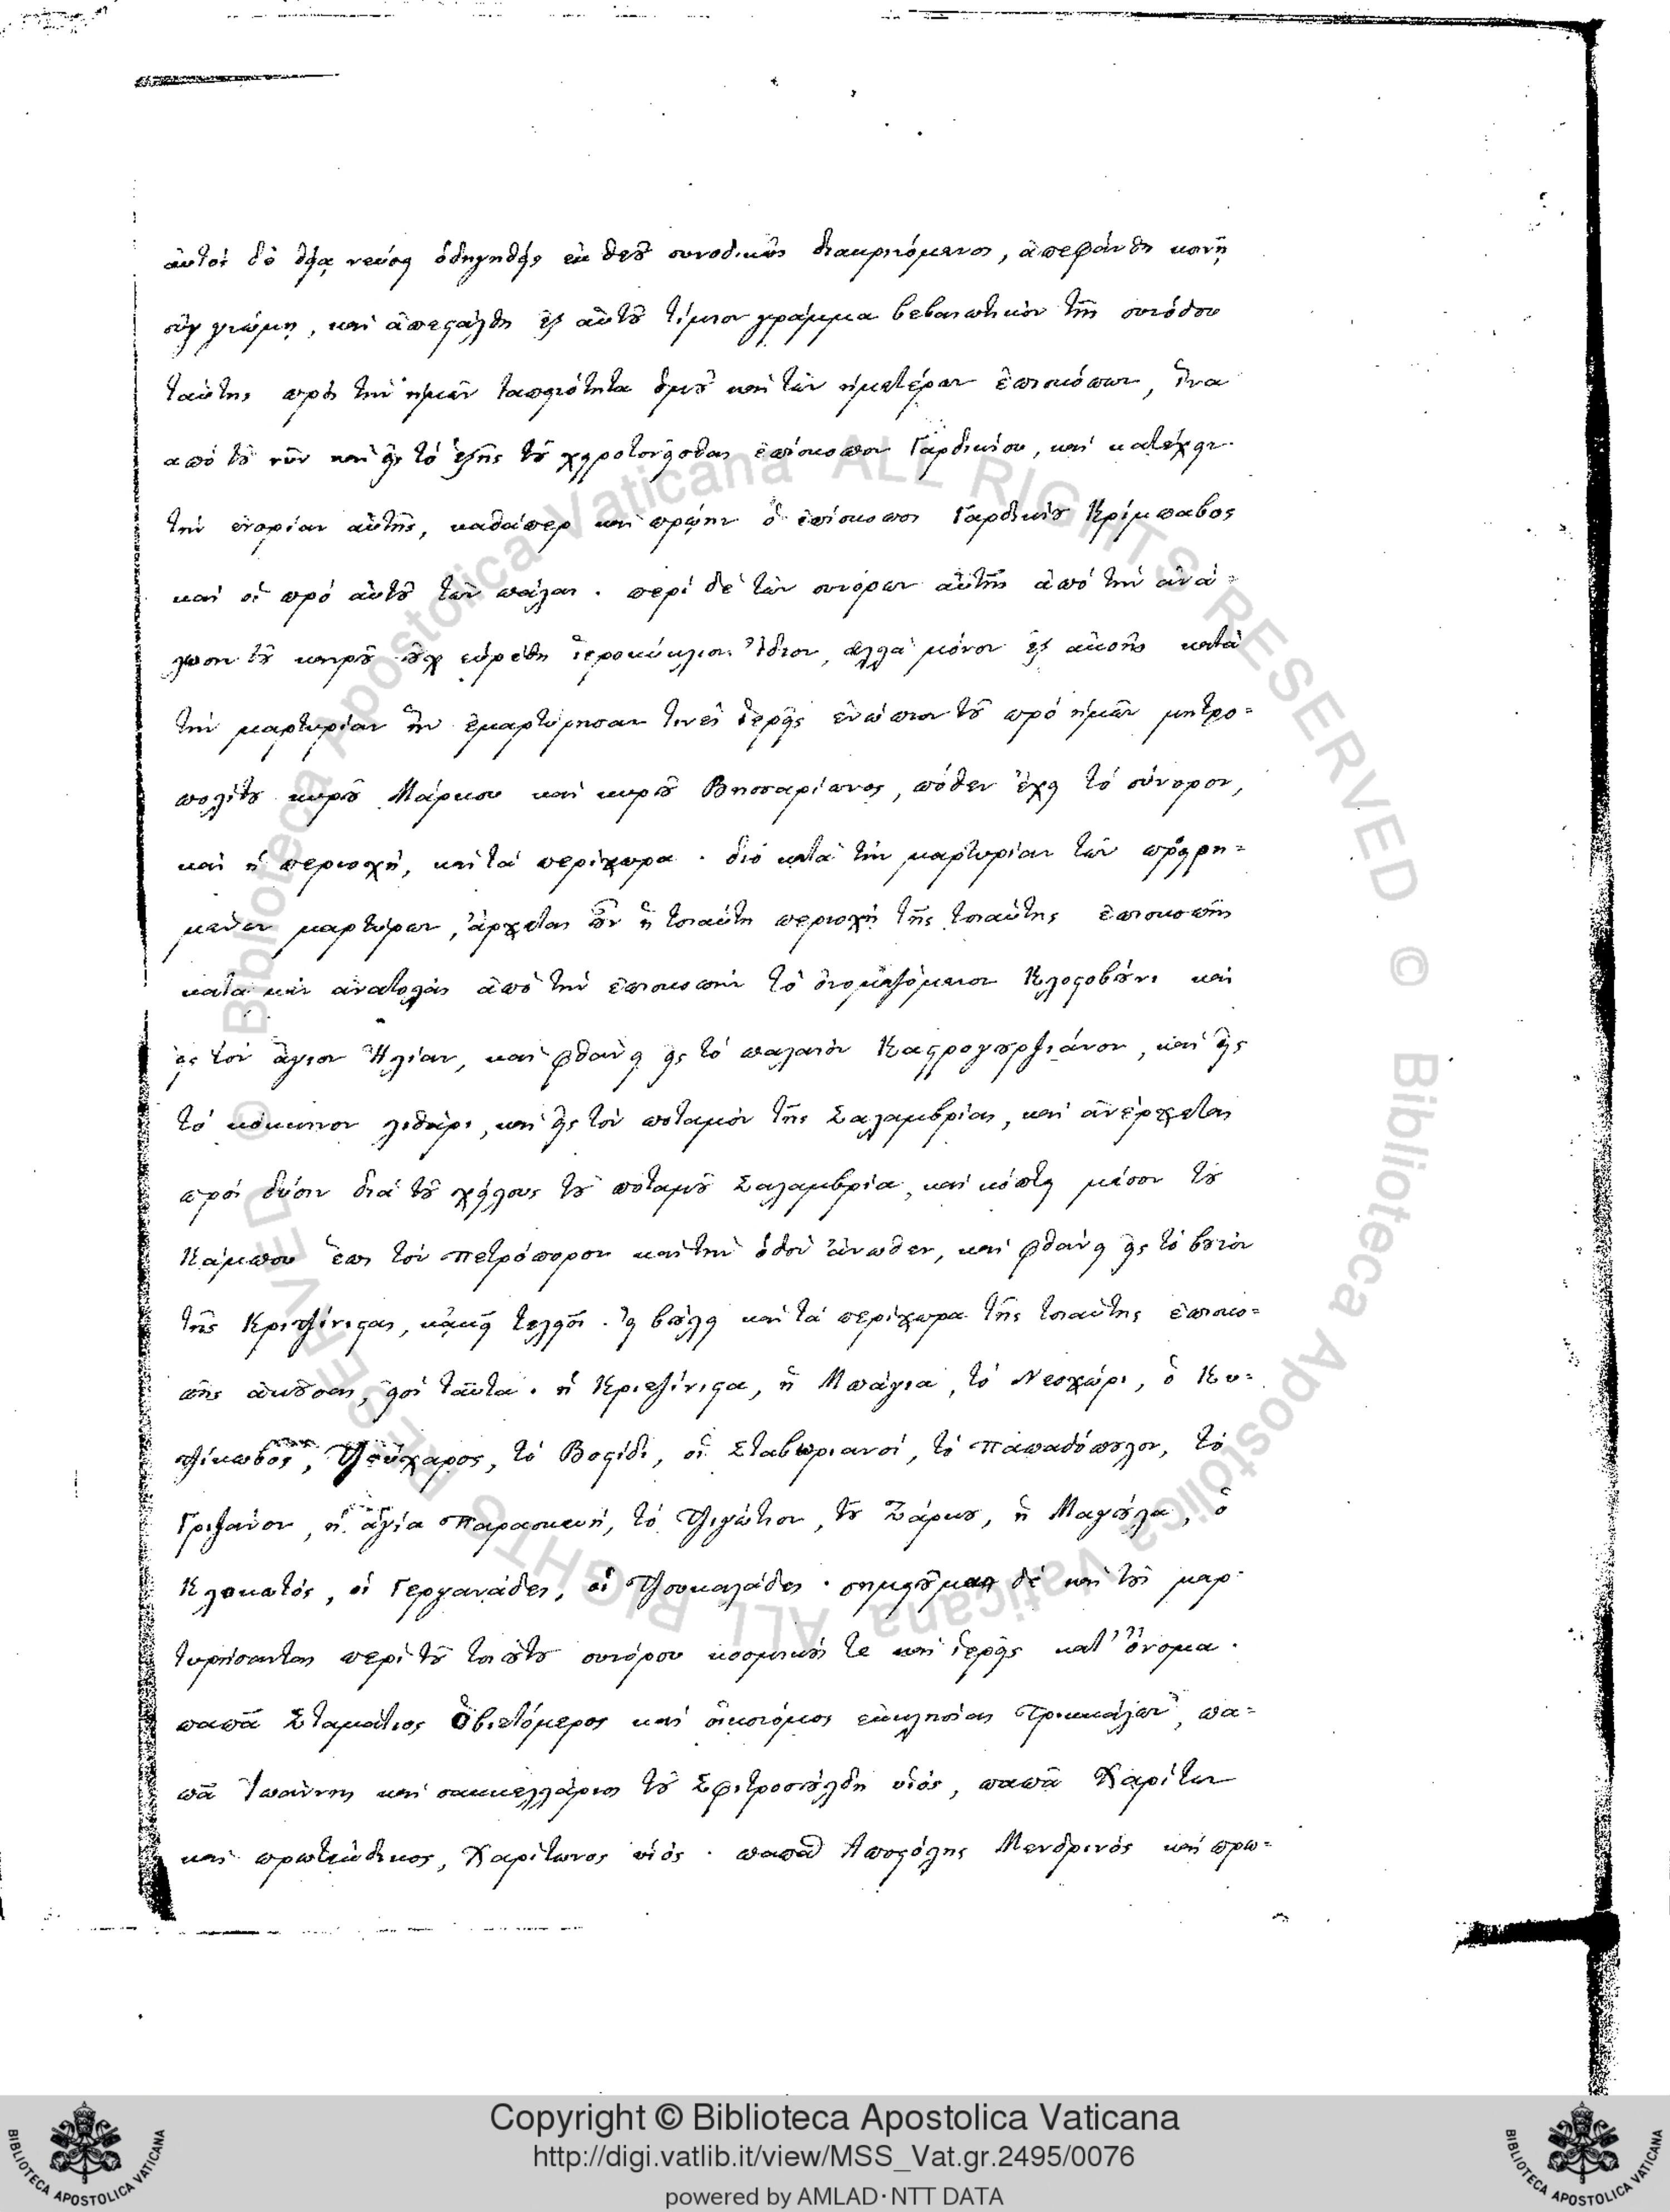 αὐτὸς δὲ θείᾳ νεύσει ὁδηγηθεὶς ἐκ θεοῦ συνοδικῶς διακρινόμενος, ἀπεφάνθη κοινῇ
σὺν γνώμῃ, καὶ ἀπεστάλθη ἐξ αὐτοῦ τίμιον γράμμα βεβαιωτικὸν τῆς συνόδου
ταύτης πρὸς τὴν ἡμῶν ταπεινότητα ὁμοῦ καὶ τῶν ἡμετέρων ἐπισκόπων, ἵνα
ἀπὸ τοῦ νῦν καὶ εἰς τὸ ἑξῆς τοῦ χειροτονεῖσθαι ἐπίσκοπον Γαρδικίου, καὶ κατέχειν
τὴν ἐνορίαν αὐτῆς, καθάπερ καὶ πρώην ὁ ἐπίσκοπος Γαρδικίου Κρίμπαβος
καὶ οἱ πρὸ αὐτοῦ τῶν πάλαι. περὶ δὲ τῶν συνόρων αὐτῆς ἀπὸ τὴν ἀνά=
λωσιν τοῦ καιροῦ οὐχ εὑρέθη ἱεροκώκλιον ἴδιον, ἀλλὰ μόνον ἐξ ἀκοῆς κατὰ
τὴν μαρτυρίαν ἣν ἐμαρτύρησαν τινὲς ἱερεῖς ἐνώπιον τοῦ πρὸ ἡμῶν μητρο=
πολίτου κυροῦ Μάρκου καὶ κυροῦ Βησσαρίωνος, πόθεν ἔχει τὸ σύνορον,
καὶ ἡ περιοχή, καὶ τὰ περίχωρα. διὸ κατὰ τὴν μαρτυρίαν τῶν προειρη=
μένων μαρτύρων, ἄρχεται οὖν ἡ τοιαύτη περιοχὴ τῆς τοιαύτης ἐπισκοπῆς
κατὰ μὲν ἀνατολὰς ἀπὸ τὴν ἐπισκοπὴν τὸ ὀνομαζόμενον Κλοστοβούνι καὶ
εἰς τὸν ἅγιον Ἠλίαν, καὶ φθάνει εἰς τὸ παλαιὸν Καστρογουρζιάνον, καὶ εἰς
τὸ κόκκινον λιθάρι, καὶ εἰς τὸν ποταμὸν τῆς Σαλαμβρίας, καὶ ἀνέρχεται
πρὸς δύσιν διὰ τοῦ χείλους τοῦ ποταμοῦ Σαλαμβρία, καὶ κόπτει μέσον τοῦ
Κάμπου ἕως τὸν Πετρόπορον καὶ τὴν ὁδὸν ἄνωθεν, καὶ φθάνει εἰς τὸ βουνὸν
τῆς Κριτζίνιστας, κἀκεῖ τελοῖ. τὰ καὶ τὰ περίχωρα τῆς τοιαύτης ἐπισκο=
πῆς ἀκοῦσαι, εἰσὶ ταῦτα. ἡ Κριτζίνιστα, ἡ Μπάγια, τὸ Νεοχώρι, ὁ Κου=
Τζεύχαρος, τὸ Βοστίδι, οἱ Σταβωριανοί, τὸ Παπαδόπουλον, τὸ
Γριζάνον, ἡ ἁγία Παρασκευή, τὸ Τζιγώτιον, τοῦ Ζάρκου, ἡ Μαγούλα, ὁ
Κλοκωτός, οἱ Γεργανάδες, οἱ Τζουκαλάδες. σημειοῦμεν δὲ καὶ τοὺς μαρ=
τυρήσαντας περὶ τοῦ τοιούτου συνόρου κοσμικοί τε καὶ ἱερεῖς κατ' ὄνομα.
παπᾶ Σταμάτιος Ὀβιετόμερος καὶ οἰκονόμος ἐκκλησίας Τρικκάλων, πα=
πᾶ Ἰωάννης καὶ σακκελλάριος τοῦ υἱός, παπᾶ Χαρίτων
καὶ πρωτέκδικος, Χαρίτωνος υἱός. παπᾶ Ἀποστόλης Μανδρινὸς καὶ πρω=
Copyright © Biblioteca Apostolica Vaticana
http://digi.vatlib.it/view/MSS_Vat.gr.2495/0076
powered by AMLAD·NTT DATA